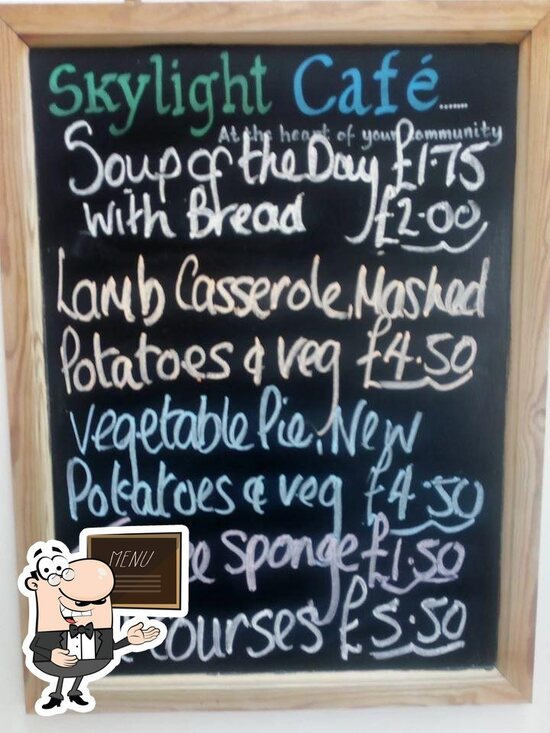 Skylight Café......
At the heart of your community
Soup of the Day £1.75
with Bread £2.00
Lamb Casserole, Mashed
Potatoes & veg £4.50
Vegetable Pie, New
Potatoes & veg £4.50
sponge £1.50
courses £5.50
MENU